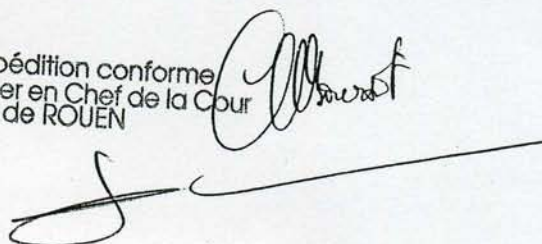 pédition conforme
er en Chef de la Cour
de ROUEN